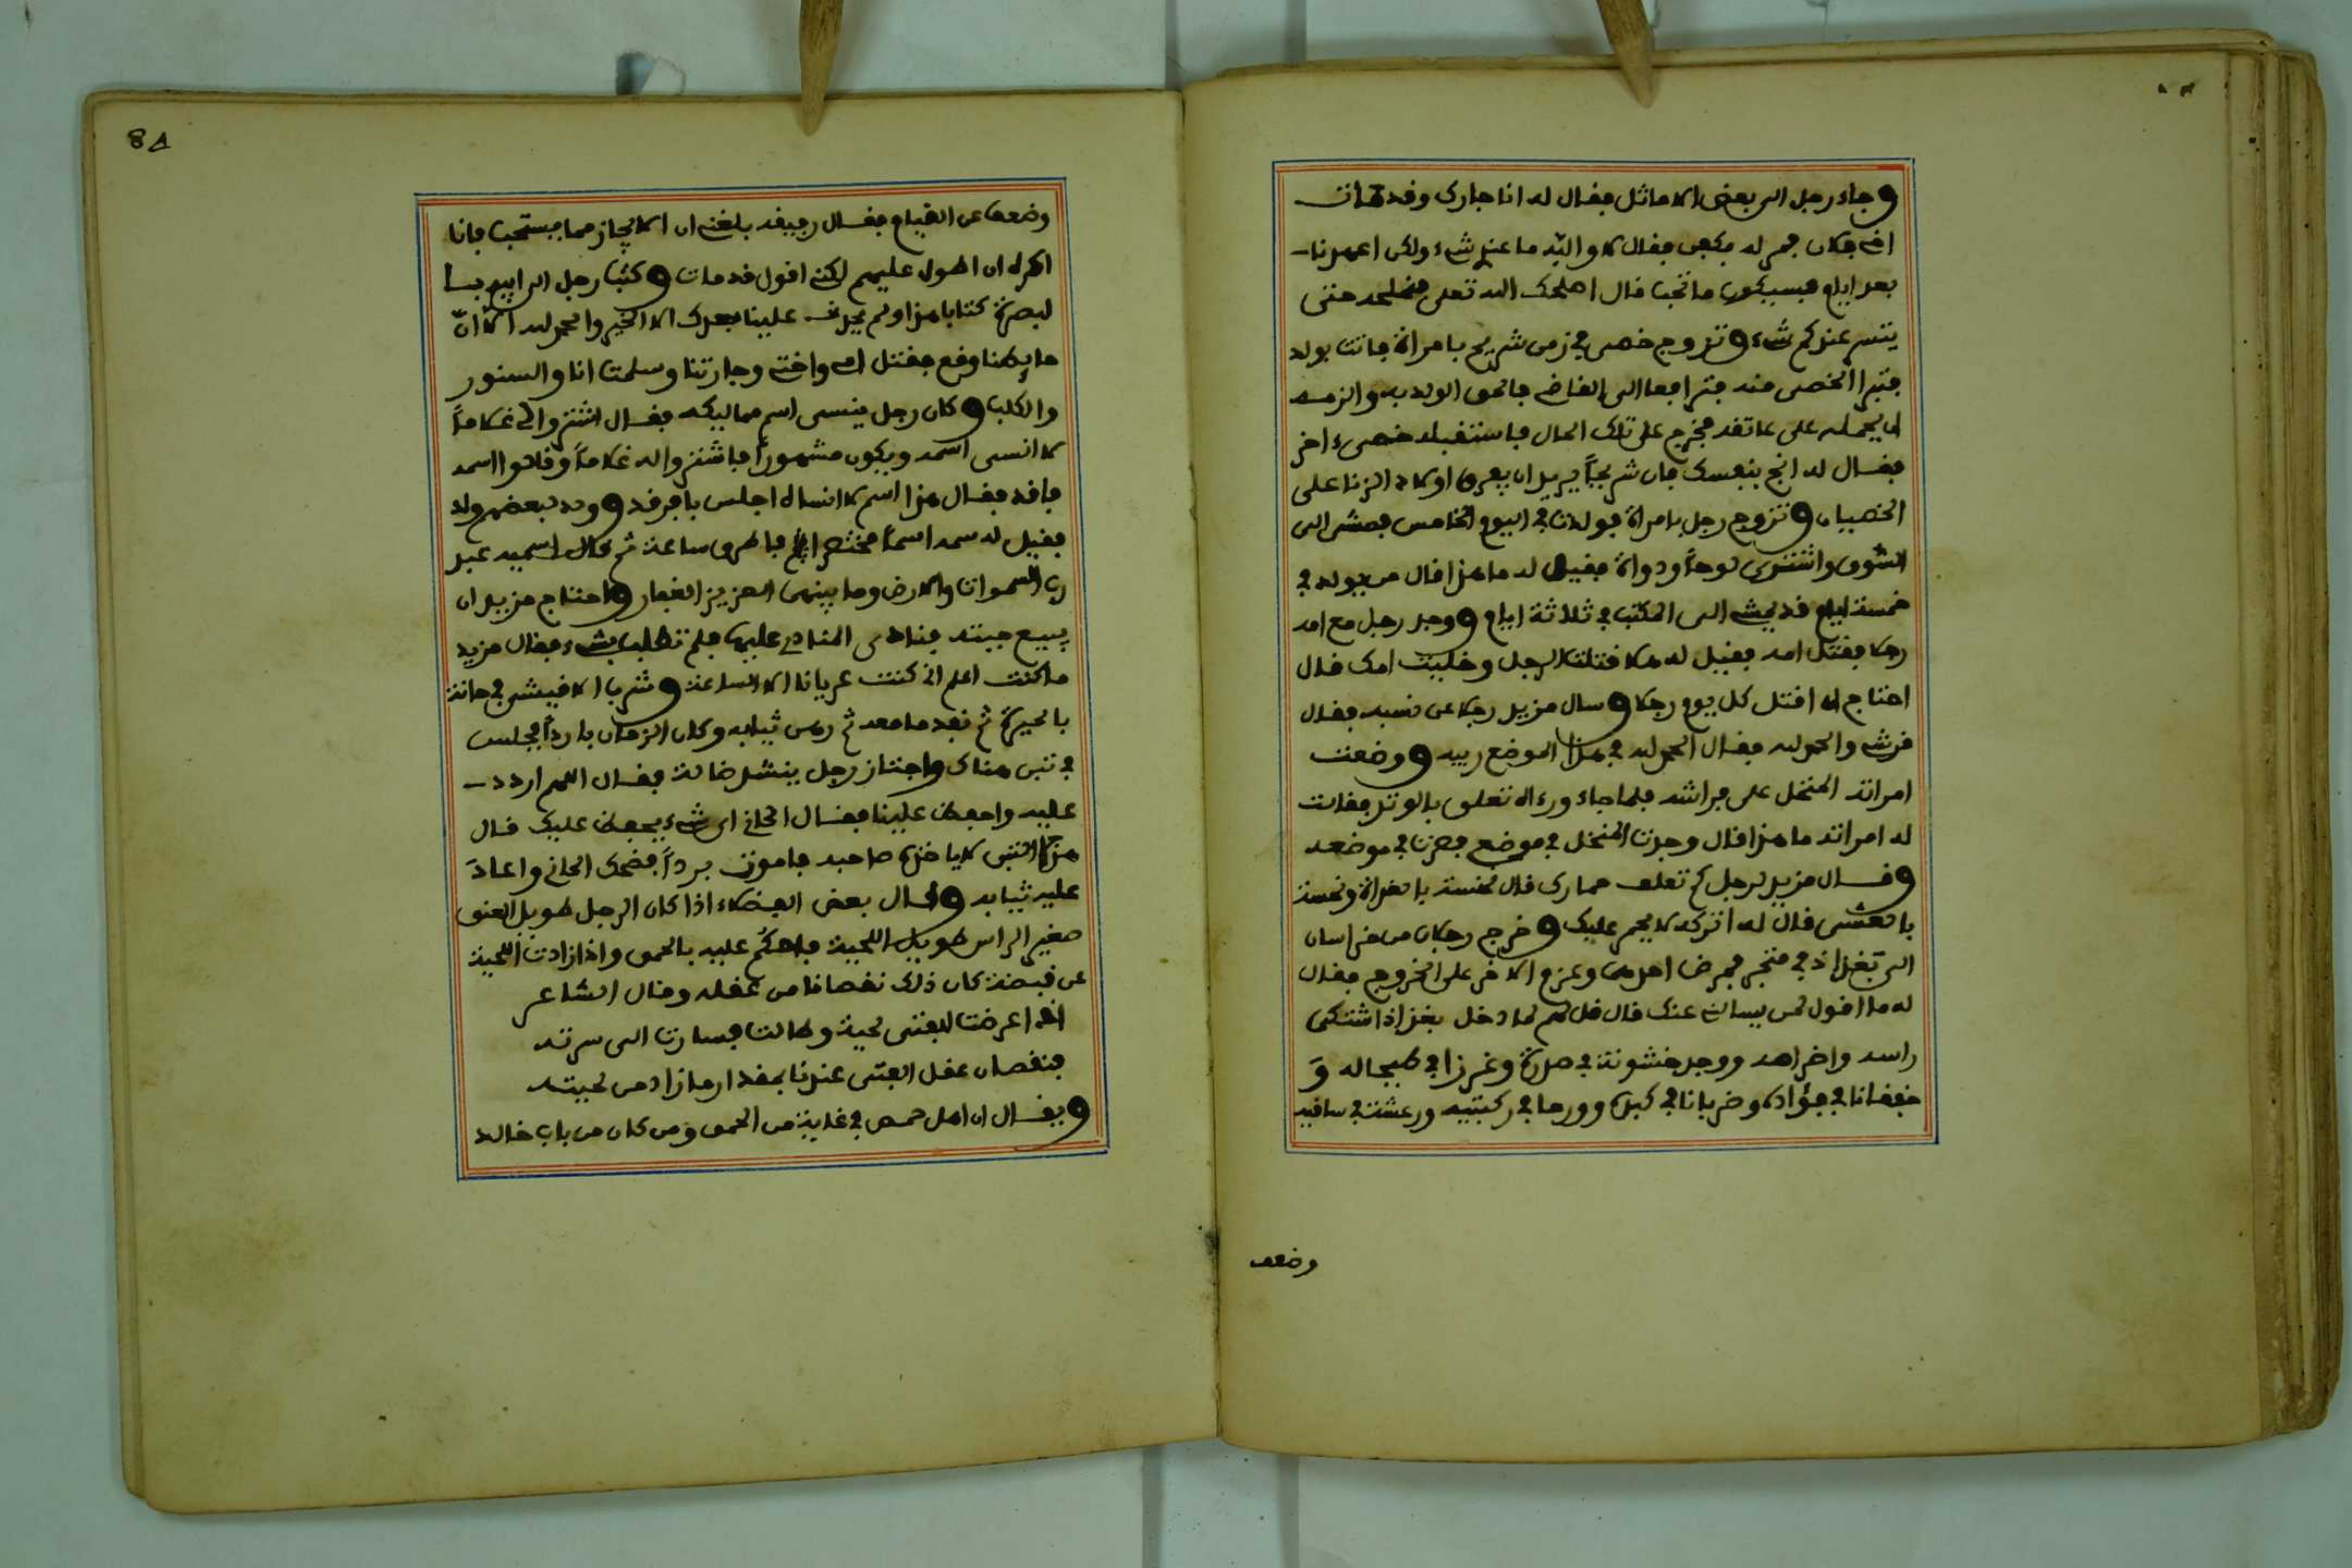 وجاء رجل الى بعض الاماثل فقال له انا جارك وقد مات
اخي فكان فمر له بكفن فقال لا والله ما عندي شيء ولكن اعهدنا
بعد ايام فسيكون ما تحب قال اصلحك الله تعلى فنملحه حتى
يتسر عندكم شيء وتزوج خصي في زمن شريح بامراة فاتت بولد
فتبرا الخصي منه فترافعا الى القاضي فالحق الولد به والزمه
ان يحمله على عاتقه فخرج على تلك الحال فاستقبله خصيء اخر
فقال له انج بنفسك فان شريحاً يريد ان يفرق اولاد الزنا على
الخصيان وتزوج رجل بامراة فولدت في اليوم الخامس فمشى الى
السوق واشترى لوحاً ودواة فقيل له ما هذا قال من يولد في
خمسة ايام قد يمشي الى المكتب في ثلاثة ايام ووجد رجل مع امه
رجلا فقتل امه فقيل له هلا قتلت الرجل وخليت امك قال
احتاج ان اقتل كل يوم رجلا وسال مزيد رجلا عن نسبه فقال
قرشي والحمد لله فقال الحمد لله في هذا الموضع ريبه ووضعت
امراته المنخل على فراشه فلما جاء ورءاه تعلق بالوتد فقالت
له امراته ما هذا قال وجدت المنخل في موضعي فصرت في موضعه
وقال مزيد لرجل كم تعلف حمارك قال خمسة بالغداة وخمسة
بالعشي قال له اتركه لا يحم عليك وخرج رجلان من خراسان
الى بغداد في متجر فمرض احدهما وعزم الاخر على الخروج فقال
له ما اقول لمن يسالني عنك قال قل لهم لما دخل بغداذ اشتكى
راسه واضراسه ووجد خشونة في صدره وغرزا في طيحاله و
خفقانا في فؤاده وضربانا في كبده وورما في ركبتيه ورعشة في ساقيه
وضعف
8٨
وضعفا عن القيام فقال رفيقه بلغني ان الايجاز مما يستحب فانا
اكره ان اطول عليهم لكني اقول قد مات وكتب رجل الى ابيه با
لبصرة كتابا هذا ولم يحدث علينا بعدك الا الخير والحمد لله الا انّ
حايطنا وقع فقتل امي واختي وجارتنا وسلمت انا والسنور
والكلب وكان رجل ينسى اسم مماليكه فقال اشتروا لي غلاماً
لا انسى اسمه ويكون مشهوراً فاشتروا له غلاماً وقالوا اسمه
فاقد فقال هذا اسم لا انساه اجلس يا فرقد وولد لبعضهم ولد
فقيل له سمه اسماً مختصرا فاطرق ساعة ثم قال اسميه عبد
رب السموات والارض وما بينهما العزيز الغفار واحتاج مزيد ان
يبيع جبته فنادى المنادي عليها فلم تطلب بشيء فقال مزيد
ما كنت اعلم اني كنت عريانا الا الساعة وشرب الاقيشر في حانة
بالحيرة ثم نفد ما معه ثم رهن ثيابه وكان الزمان بارداً فجلس
في تبن هناك واجتاز رجل ينشد ضالة فقال اللهم اردد
عليه واحفظ علينا فقال الحاني اي شيء يحفظ عليك قال
هذا التبن لا ياخذه صاحبه فاموت برداً فضحك الحاني واعاد
عليه ثيابه وقال بعض الفضلاء اذا كان الرجل طويل العنق
صغير الراس طويل اللحية فاحكم عليه بالحمق واذا زادت اللحية
عن قبضة كان ذلك نقصانا من عقله وقال الشاعر
اذا عرضت للفتى لحية وطالت فصارت الى سرته
فنقصان عقل الفتى عندنا بمقدار ما زاد من لحيته
ويقال ان اهل حمص في غاية من الحمق ومن كان من باب خالد